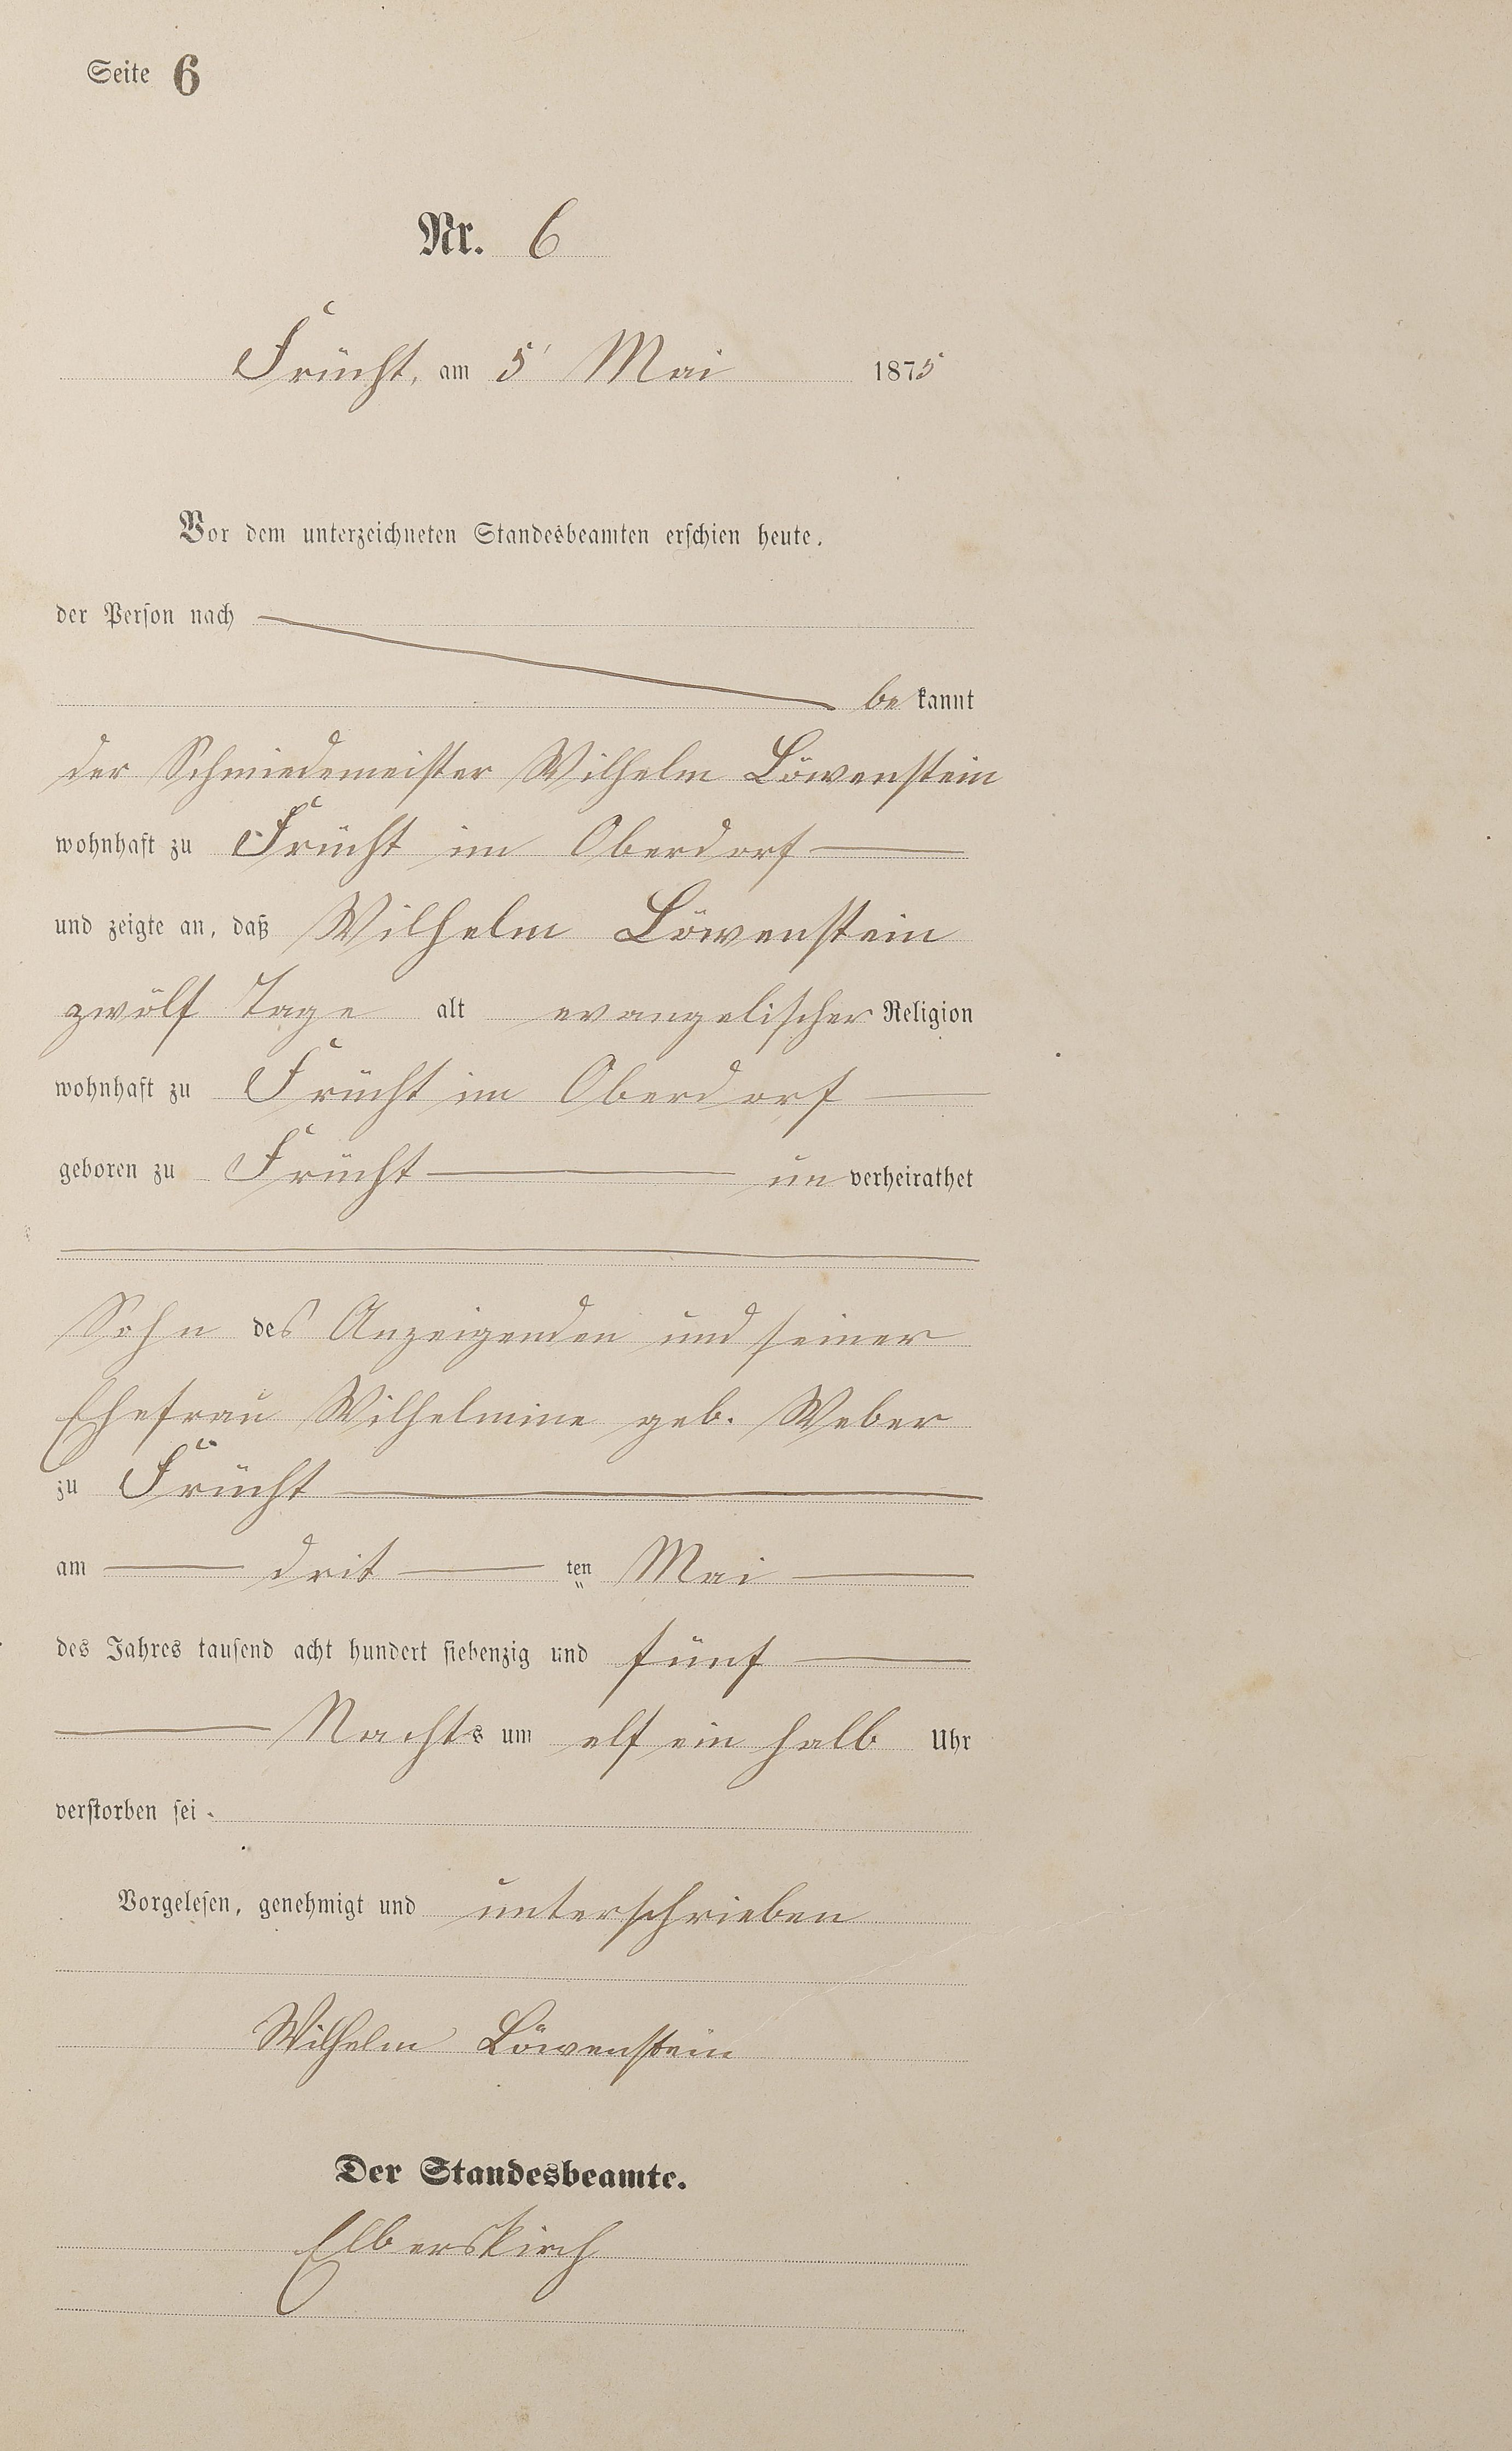 Seite 6
Nr. 6
Frücht, am 5' Mai 1875
Vor dem unterzeichneten Standesbeamten erschien heute,
der Person nach
bekannt
der Schmiedemeister Wilhelm Löwenstein
wohnhaft zu Frücht im Oberdorf
und zeigte an, daß Wilhelm Löwenstein
zwölf Tage alt evangelischer Religion
wohnhaft zu Frücht im Oberdorf
geboren zu Frücht unverheirathet
Sohn des Anzeigenden und seiner
Ehefrau Wilhelmine geb. Weber
zu Frücht
am drit ten Mai
des Jahres tausend acht hundert siebenzig und fünf
Nachts um elf ein halb Uhr
verstorben sei.
Vorgelesen, genehmigt und unterschrieben
Wilhelm Löwenstein
Der Standesbeamte.
Elberskirch